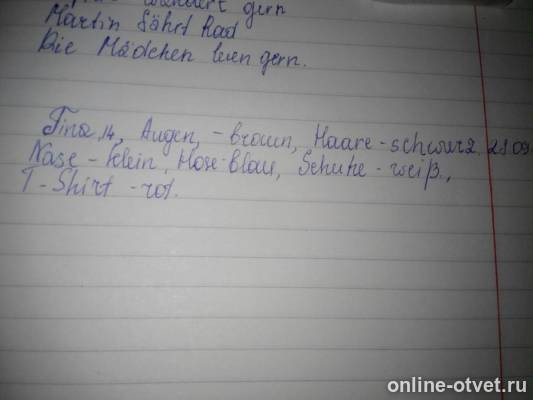 wandert gern
Martin fährt Rad
Die Mädchen lesen gern.
Tina 14, Augen, - brown, Haare - schwarz, 21.09.
Nase - klein, Hose - blau, Schuhe - weiß,
T-Shirt - rot.
online-otvet.ru